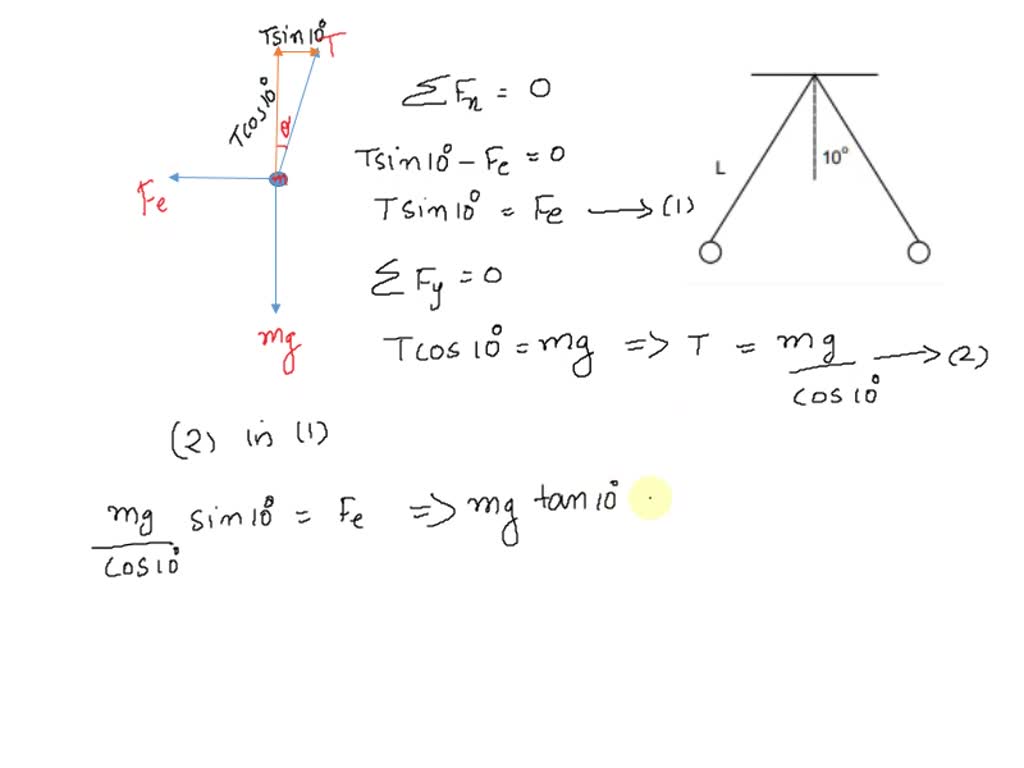 Tsin10°
T
Tcos10°
θ
m
Fe
mg
ΣFx = 0
Tsin10° - Fe = 0
Tsin10° = Fe → (1)
ΣFy = 0
Tcos10° = mg => T = mg/cos10° → (2)
L
10°
(2) in (1)
mg/cos10° sin10° = Fe => mg tan10°